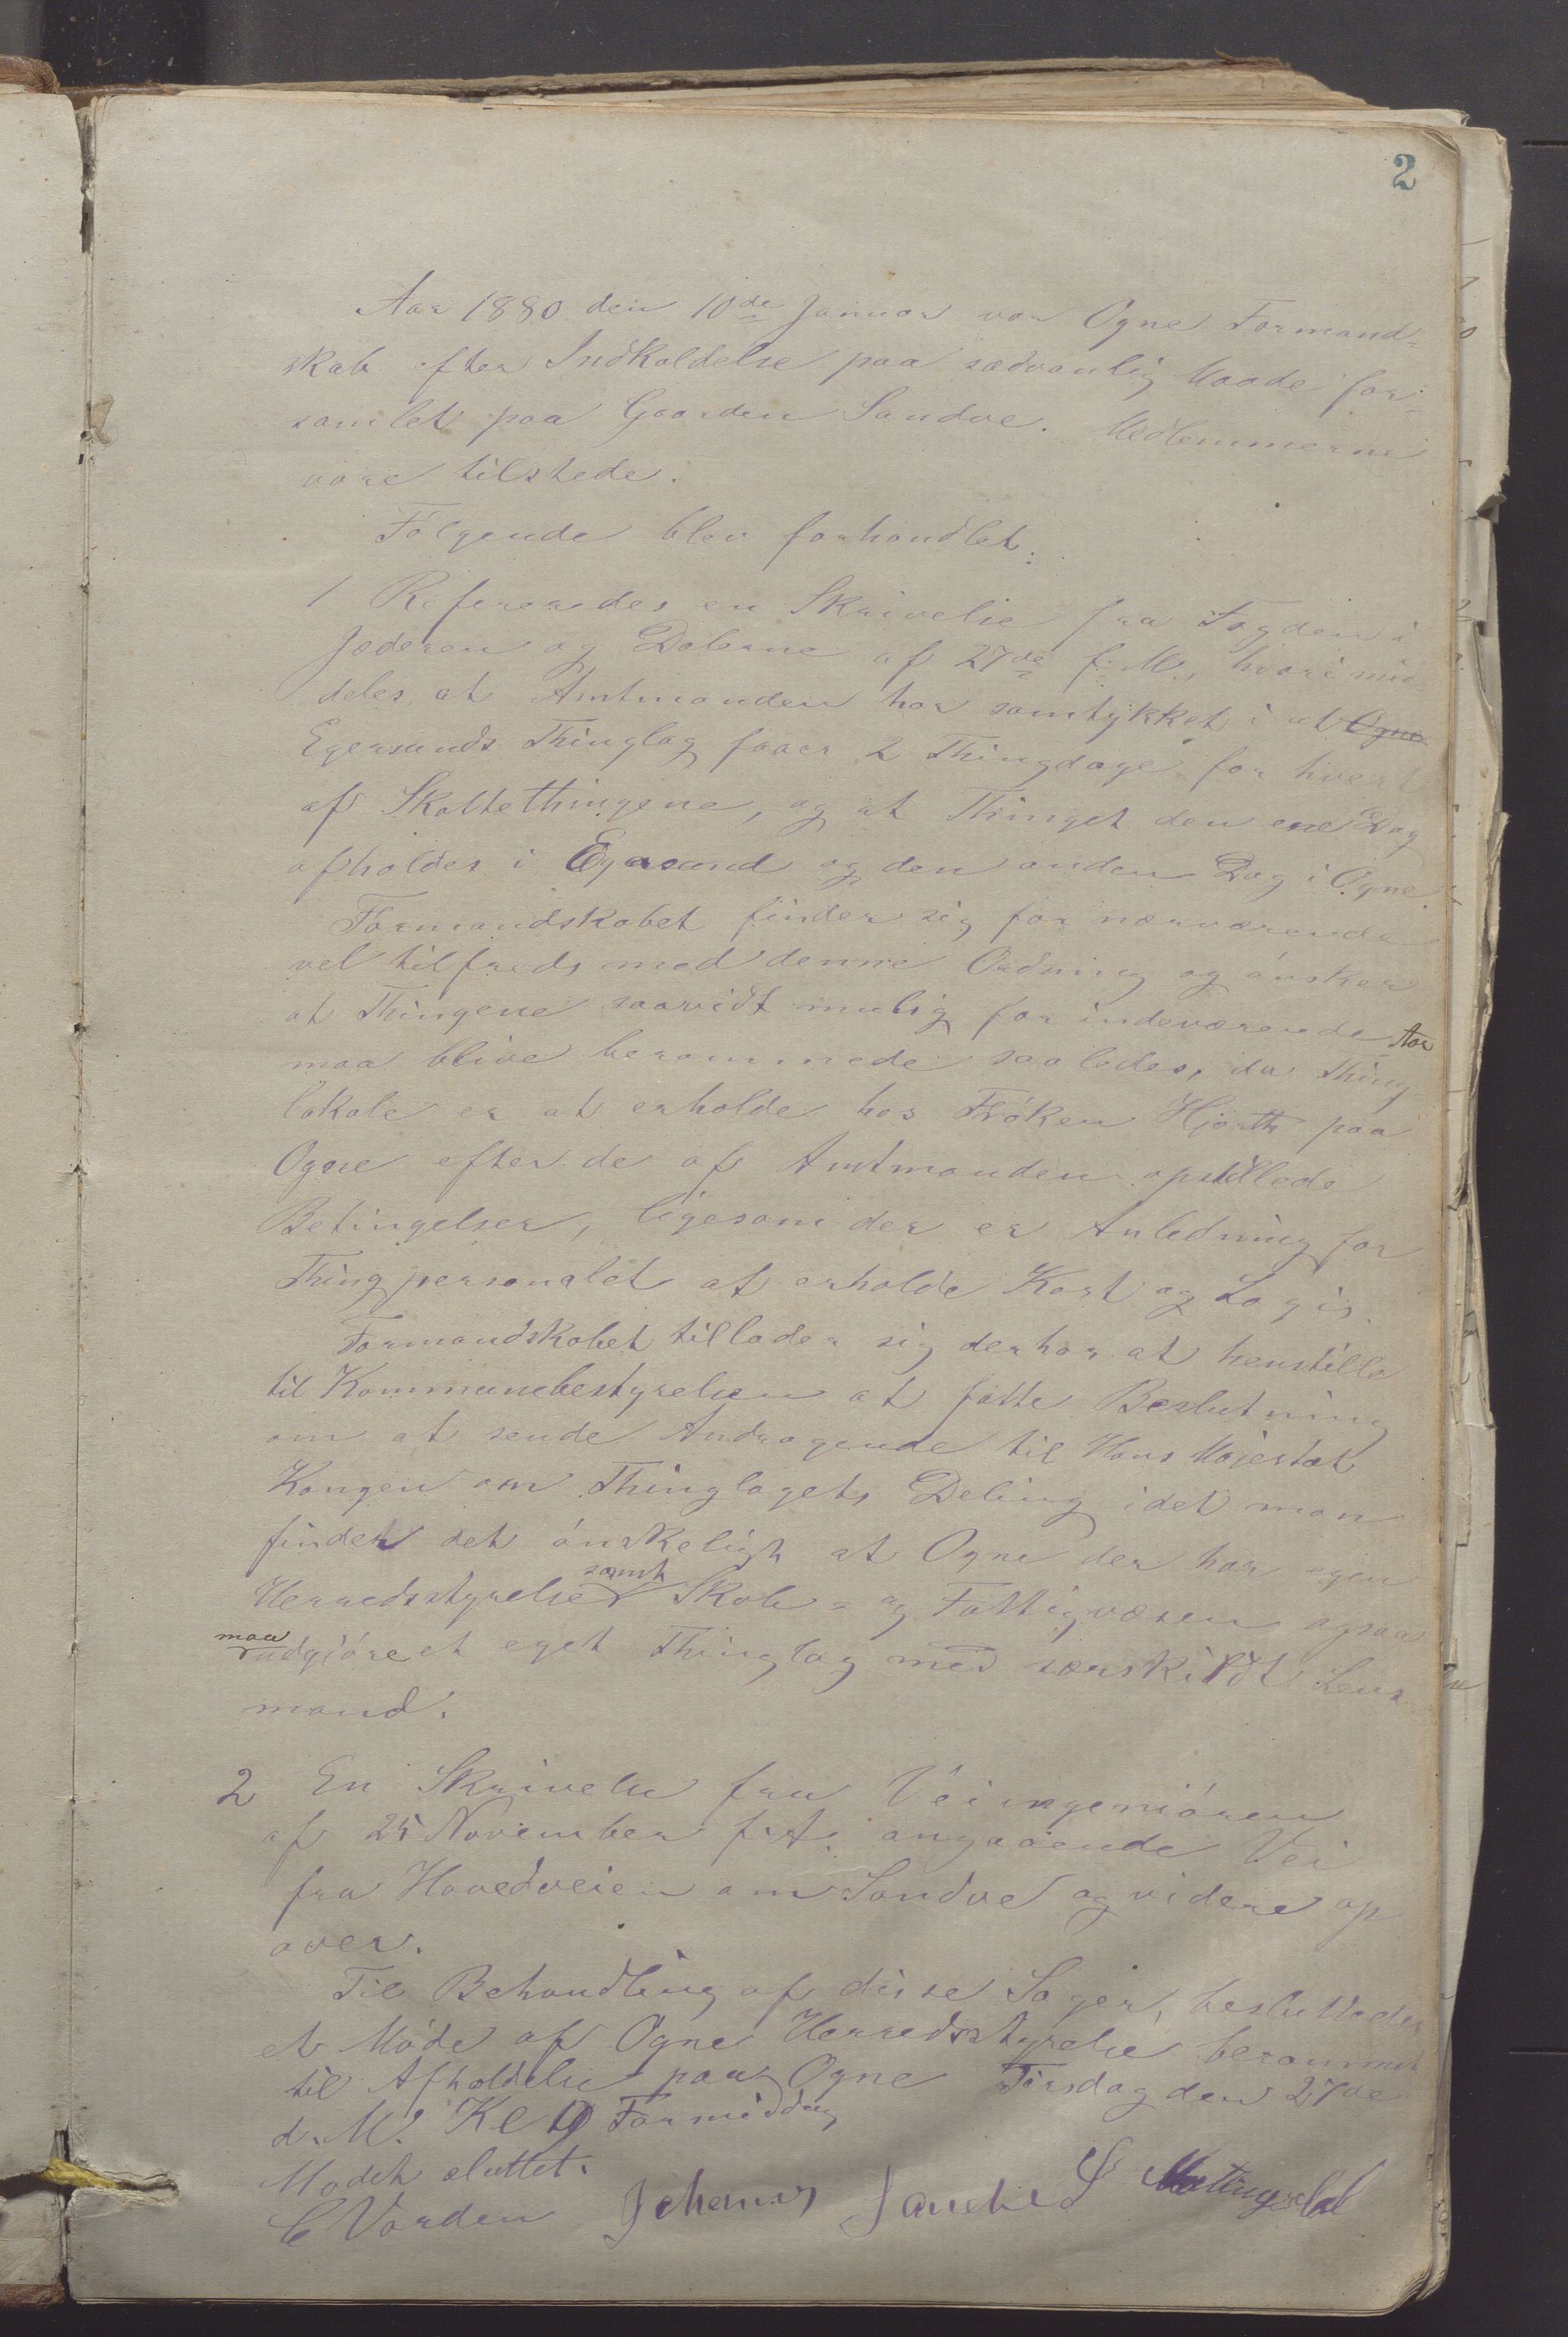 2
Aar 1880 den 10de Januar var Ogne Formand=
skab efter Indkaldelse paa sædvanlig Maade for=
samlet paa Gaarden Sandve. Medlemmerne
vare tilstede.
Følgende blev forhandlet:
1 Refereredes en Skrivelse fra Fogden i
Jæderen og Dalerne af 27de f. M., hvori med
deles at Amtmanden har samtykket i at Ogne
Egersunds Thinglag faaer 2 Thingdage for hvert
af Skattethingene, og at Thinget den ene Dag
afholdes i Egersund og den anden Dag i Ogne.
Formandskabet finder sig for nærværende
vel tilfreds med denne Ordning og ønsker
at Thingene saavidt mulig for indeværende Aar
maa blive berammede saaledes, da Thing
lokale er at erholde hos Frøken Hjorth paa
Ogne efter de af Amtmanden opstillede
Betingelser, ligesom der er Anledning for
Thingpersonalet at erholde Kost og Logis.
Formandskabet tillader sig derhos at henstille
til Kommunebestyrelsen at fatte Beslutning
om at sende Andragende til Hans Majestæt
Kongen om Thinglagets Deling idet man
finder det ønskeligt at Ogne der har egen
Herredsstyrelse samt Skole= og Fattigvæsen ogsaa
maa udgjøre et eget Thinglag med særskildt Lens
mand.
2 En Skrivelse fra Veiingeniøren
af 25 November f. A. angaaende Vei
fra Hovedveien om Sandve og videre op
over.
Til Behandling af disse Sager, besluttedes
et Møde af Ogne Herredsstyrelse berammet
til Afholdelse paa Ogne Tirsdag den 27de
d. M. Kl 9 Formiddag
Mødet sluttet.
C Varden Johannes S Mattingsdal